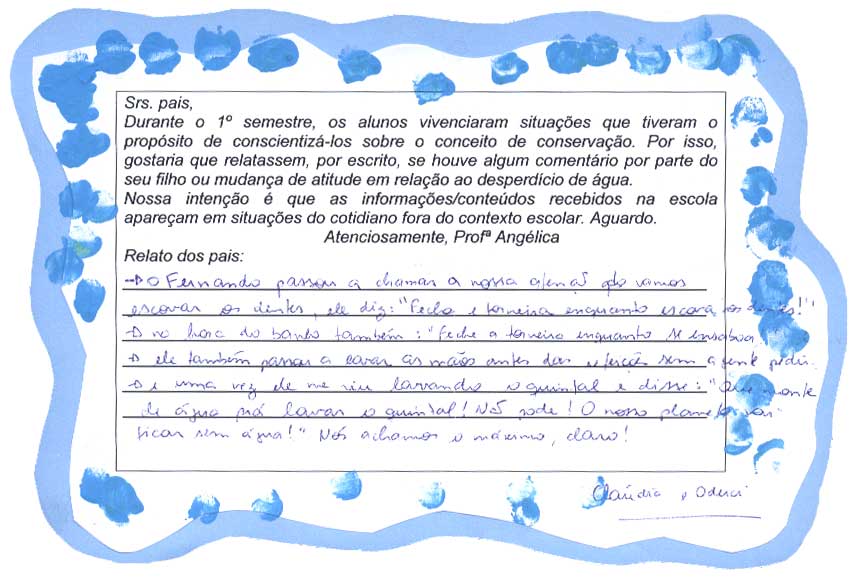 Srs. pais,
Durante o 1º semestre, os alunos vivenciaram situações que tiveram o
propósito de conscientizá-los sobre o conceito de conservação. Por isso,
gostaria que relatassem, por escrito, se houve algum comentário por parte do
seu filho ou mudança de atitude em relação ao desperdício de água.
Nossa intenção é que as informações/conteúdos recebidos na escola
apareçam em situações do cotidiano fora do contexto escolar. Aguardo.
Atenciosamente, Profª Angélica
Relato dos pais:
→ O Fernando passou a chamar a nossa atenção qdo vamos
escovar os dentes, ele diz: "Feche a torneira enquanto escova os dentes!"
→ na hora do banho também: "Feche a torneira enquanto se ensaboa."
→ ele também passou a lavar as mãos antes das refeições sem a gente pedir.
→ e uma vez ele me viu lavando o quintal e disse: "Que monte
de água prá lavar o quintal! Não pode! O nosso planeta vai
ficar sem água!" Nós achamos o máximo, claro!
Claúdia e Oderci